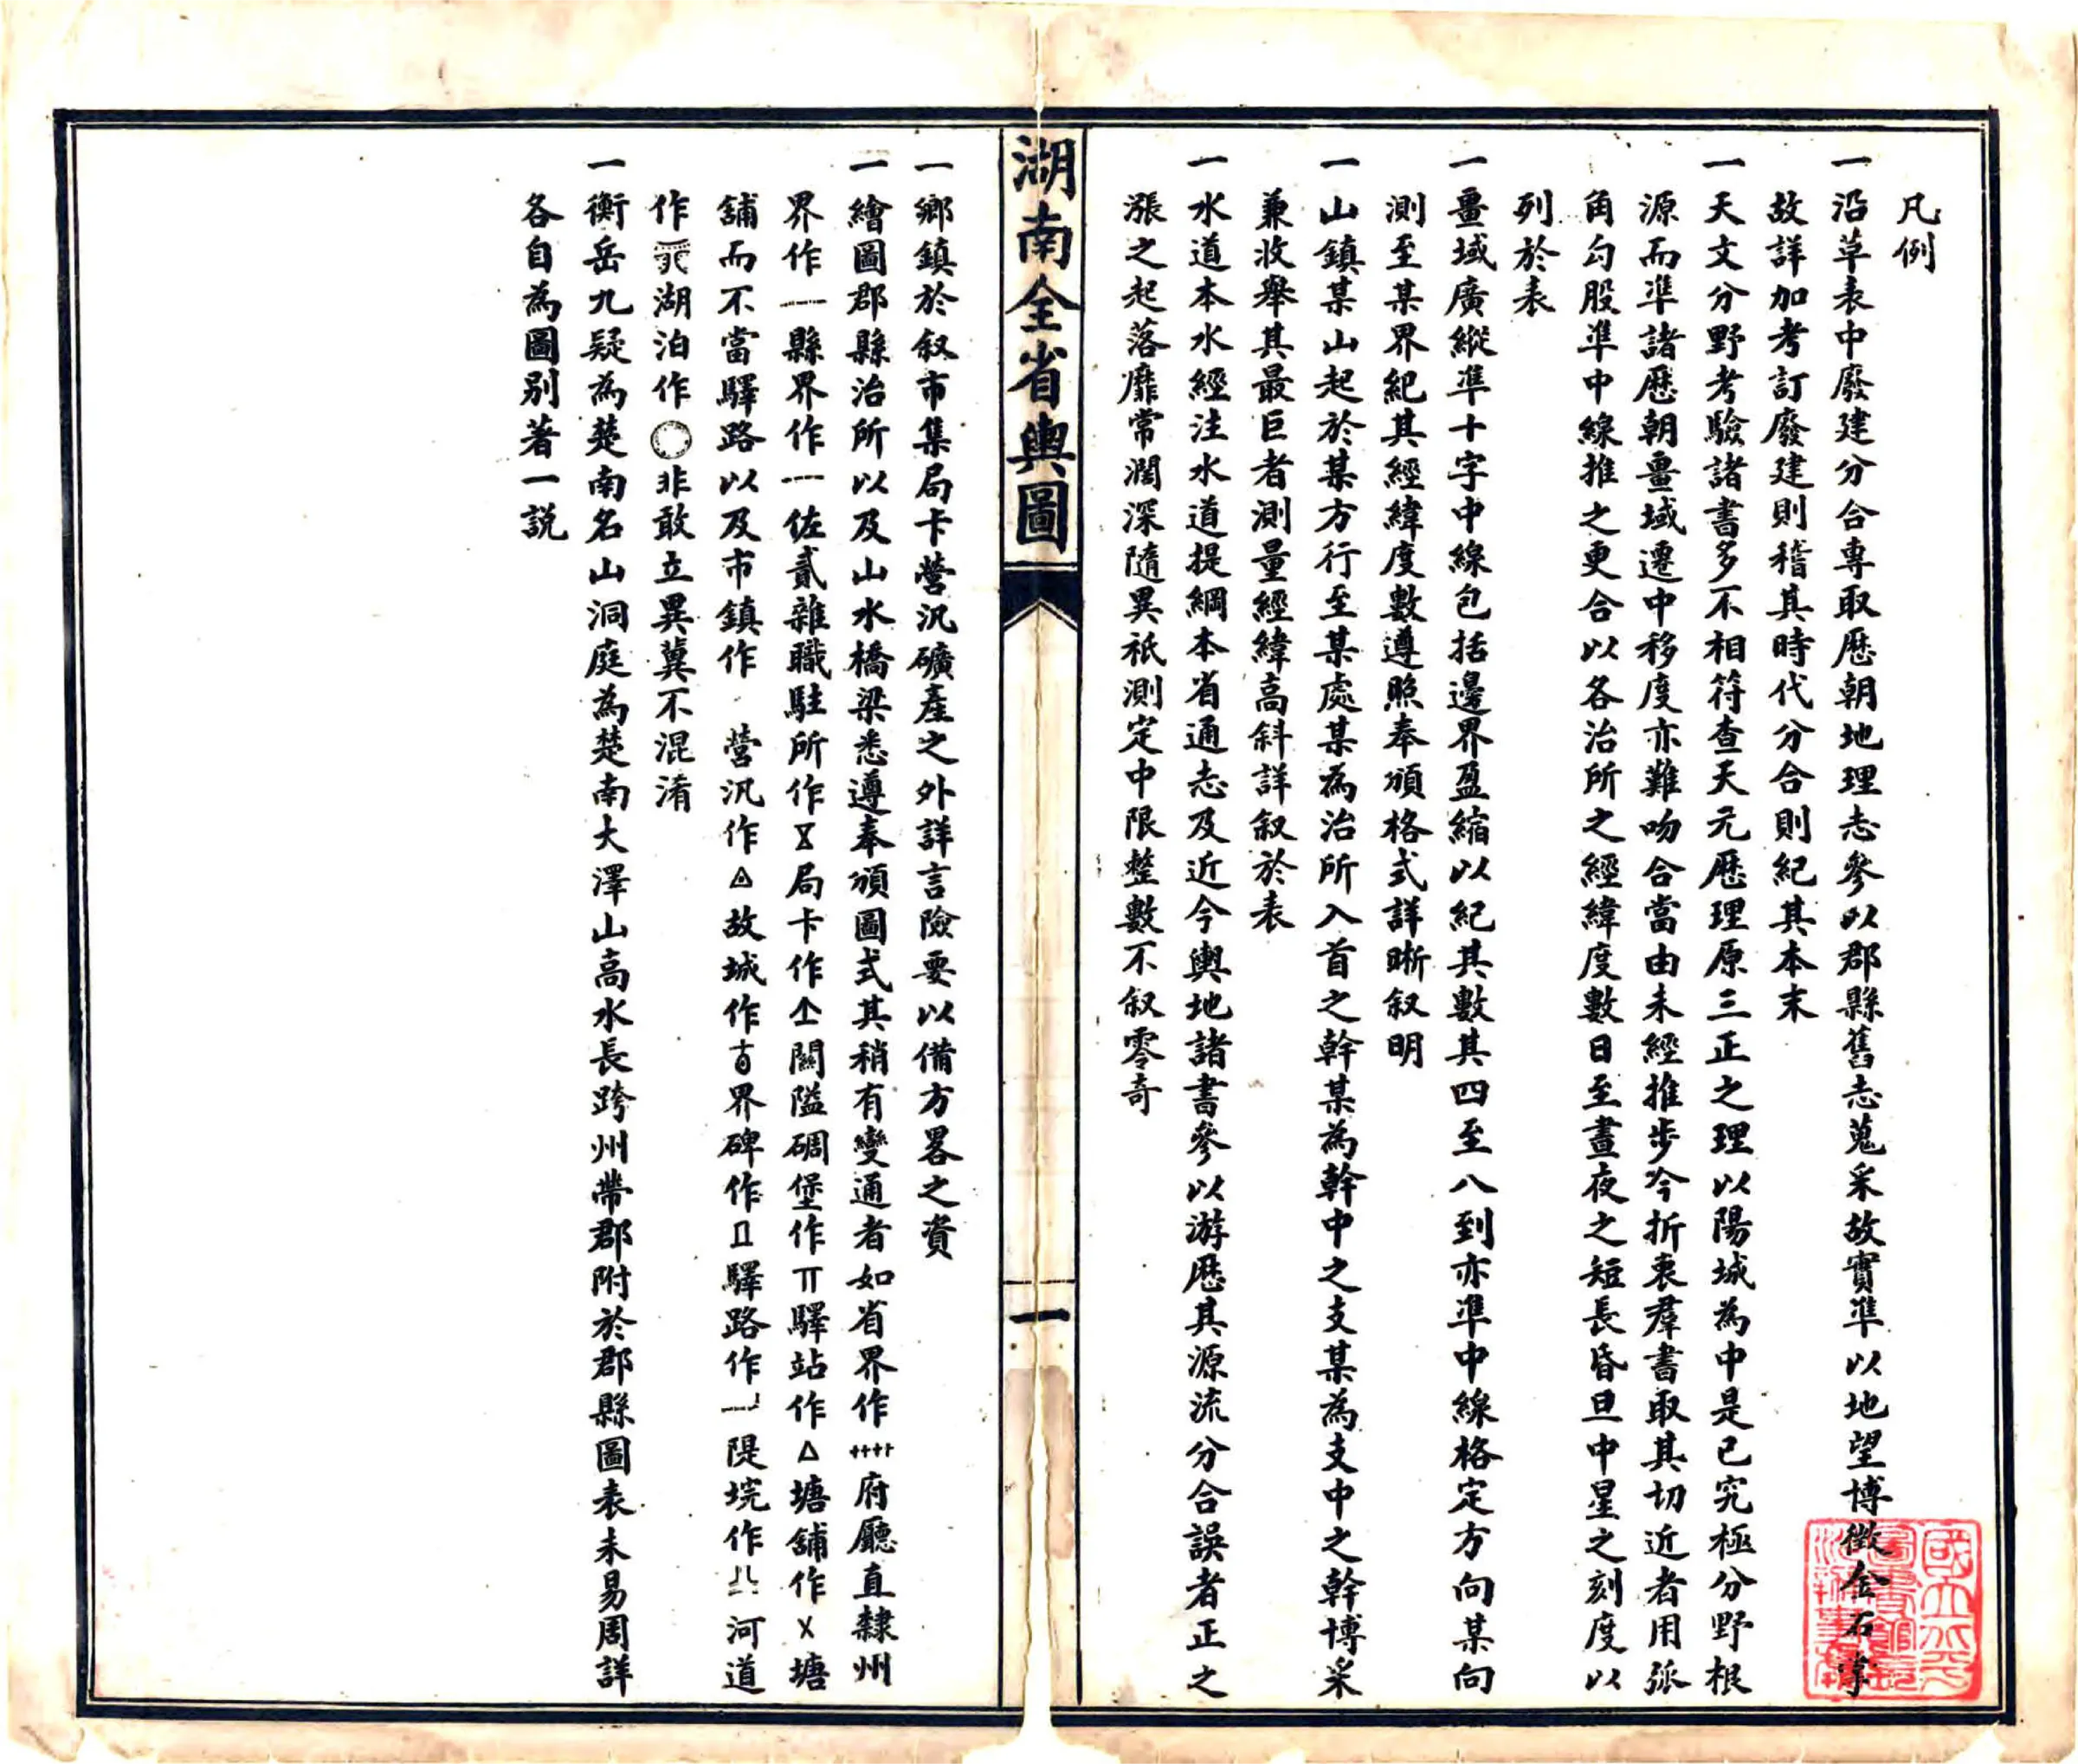 凡例
一沿革表中廢建分合專取歷朝地理志參以郡縣舊志蒐采故實準以地望博徵金石掌
故詳加考訂廢建則稽其時代分合則紀其本末
一天文分野考驗諸書多不相符查天元歷理原三正之理以陽城為中是已究極分野根
源而準諸歷朝畺域遷中移度亦難吻合當由未經推步今折衷羣書取其切近者用弧
角勾股準中線推之更合以各治所之經緯度數日至晝夜之短長昏旦中星之刻度以
列於表
一畺域廣縱準十字中線包括邊界盈縮以紀其數其四至八到亦準中線格定方向某向
測至某界紀其經緯度數遵照奉頒格式詳晰叙明
一山鎮某山起於某方行至某處某為治所入首之幹某為幹中之支某為支中之幹博采
兼收舉其最巨者測量經緯高斜詳叙於表
一水道本水經注水道提綱本省通志及近今輿地諸書參以游歷其源流分合誤者正之
漲之起落靡常濶深隨異祇測定中限整數不叙零奇
湖南全省輿圖
一
一鄉鎮於叙市集局卡營汛礦產之外詳言險要以備方畧之資
一繪圖郡縣治所以及山水橋梁悉遵奉頒圖式其稍有變通者如省界作府廳直隸州
界作縣界作佐貳雜職駐所作局卡作關隘碉堡作驛站作塘舖作塘
舖而不當驛路以及市鎮作營汛作故城作界碑作驛路作隄垸作河道
作湖泊作非敢立異冀不混淆
一衡岳九疑為楚南名山洞庭為楚南大澤山高水長跨州帶郡附於郡縣圖表未易周詳
各自為圖別著一說